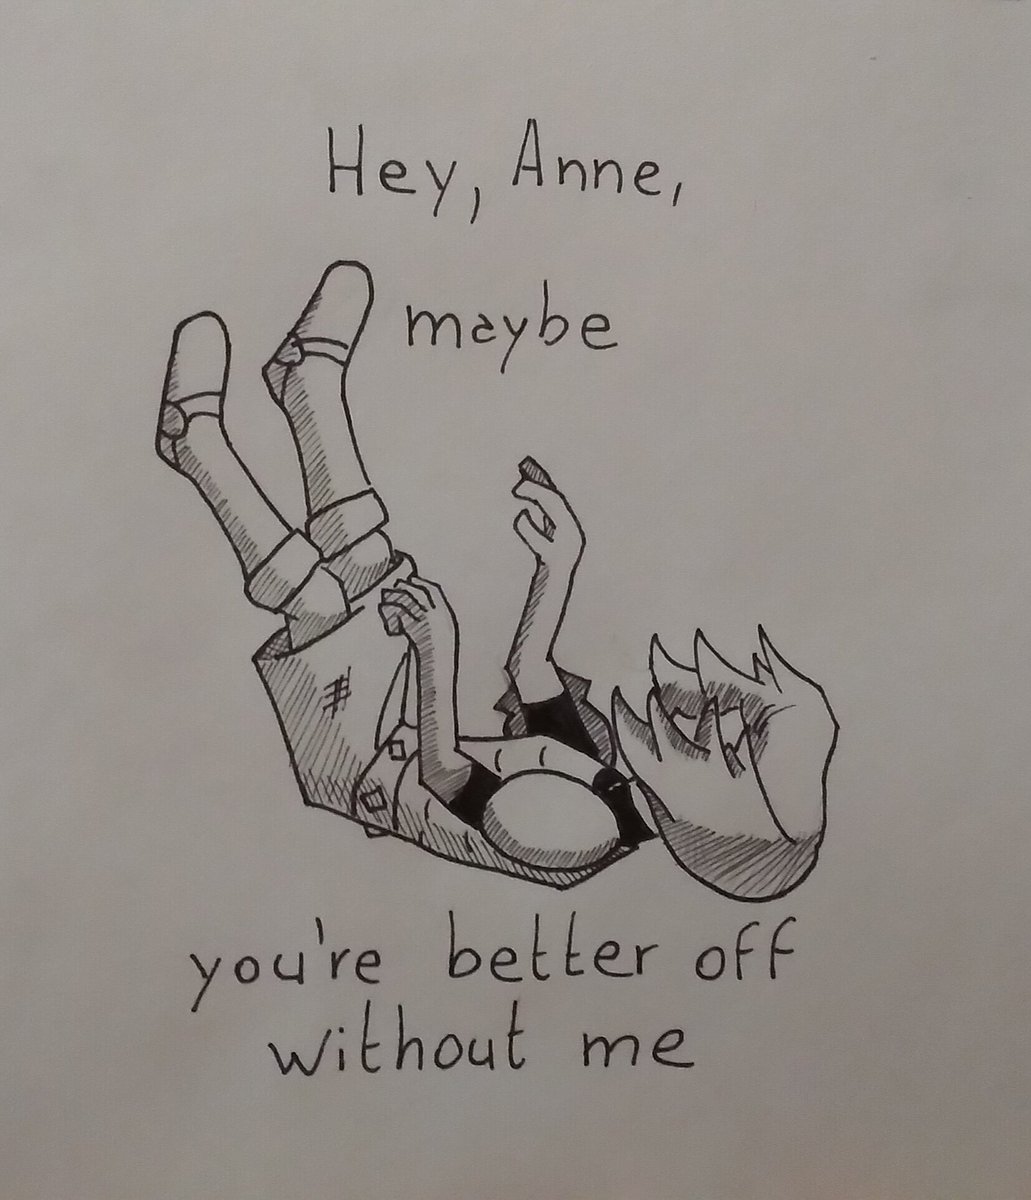 Hey, Anne,
maybe
you're better off
without me